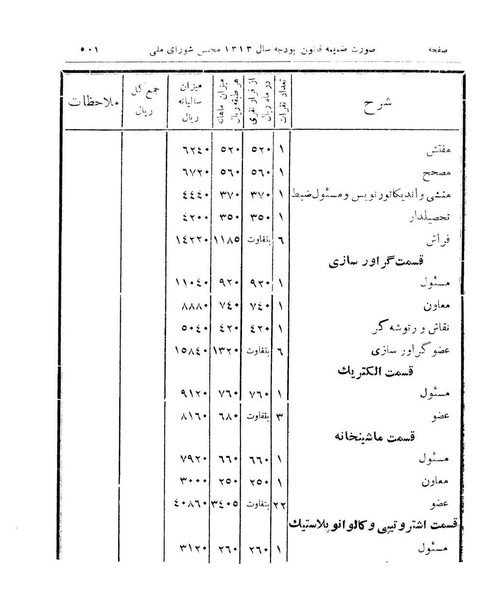 صفحه صورت ضمیمه قانون بودجه سال ۱۳۱۳ مجلس شورای ملی ۵۰۱
شرح تعداد نفرات از قرار نفری در ماه ریال میزان ماهانه هر طبقه ریال میزان سالیانه ریال جمع کل ریال ملاحظات
مفتش ۱ ۵۲۰ ۵۲۰ ۶۲۴۰
مصحح ۱ ۵۶۰ ۵۶۰ ۶۷۲۰
منشی و اندیکاتور نویس و مسئول ضبط ۱ ۳۷۰ ۳۷۰ ۴۴۴۰
تحصیلدار ۱ ۳۵۰ ۳۵۰ ۴۲۰۰
فراش ۶ بتفاوت ۱۱۸۵ ۱۴۲۲۰
قسمت گراور سازی
مسئول ۱ ۹۲۰ ۹۲۰ ۱۱۰۴۰
معاون ۱ ۷۴۰ ۷۴۰ ۸۸۸۰
نقاش و رتوشه گر ۱ ۴۲۰ ۴۲۰ ۵۰۴۰
عضو گراور سازی ۶ بتفاوت ۱۳۲۰ ۱۵۸۴۰
قسمت الکتریك
مسئول ۱ ۷۶۰ ۷۶۰ ۹۱۲۰
عضو ۳ بتفاوت ۶۸۰ ۸۱۶۰
قسمت ماشینخانه
مسئول ۱ ۶۶۰ ۶۶۰ ۷۹۲۰
معاون ۱ ۲۵۰ ۲۵۰ ۳۰۰۰
عضو ۲۲ بتفاوت ۳۴۰۵ ۴۰۸۶۰
قسمت اشتروتیپی و کالوانوپلاستیك
مسئول ۱ ۲۶۰ ۲۶۰ ۳۱۲۰